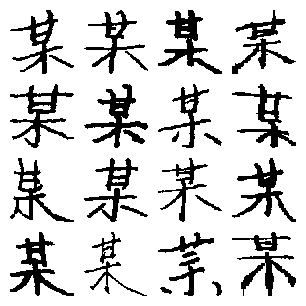 某某某某
某某某某
某某某某
某某某某